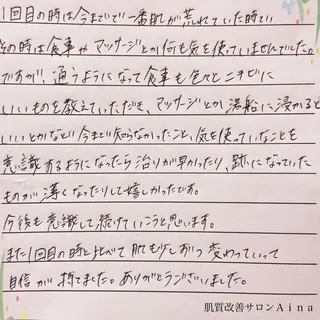 1回目の時は今までで一番肌が荒れていた時で
その時は食事やマッサージとか何も気を使っていませんでした。
ですが、通うようになって食事も色々とニキビに
いいものを教えていただき、マッサージとか湯船に浸かると
いいとかなど今まで知らなかったこと、気を使っていなことも
意識するようになったら治りが早かったり、跡になっていた
ものが薄くなったりして嬉しかったです。
今後も意識して続けていこうと思います。
また1回目の時と比べて肌も少しずつ変わっていって
自信が持てました。ありがとうございました。
肌質改善サロンAina